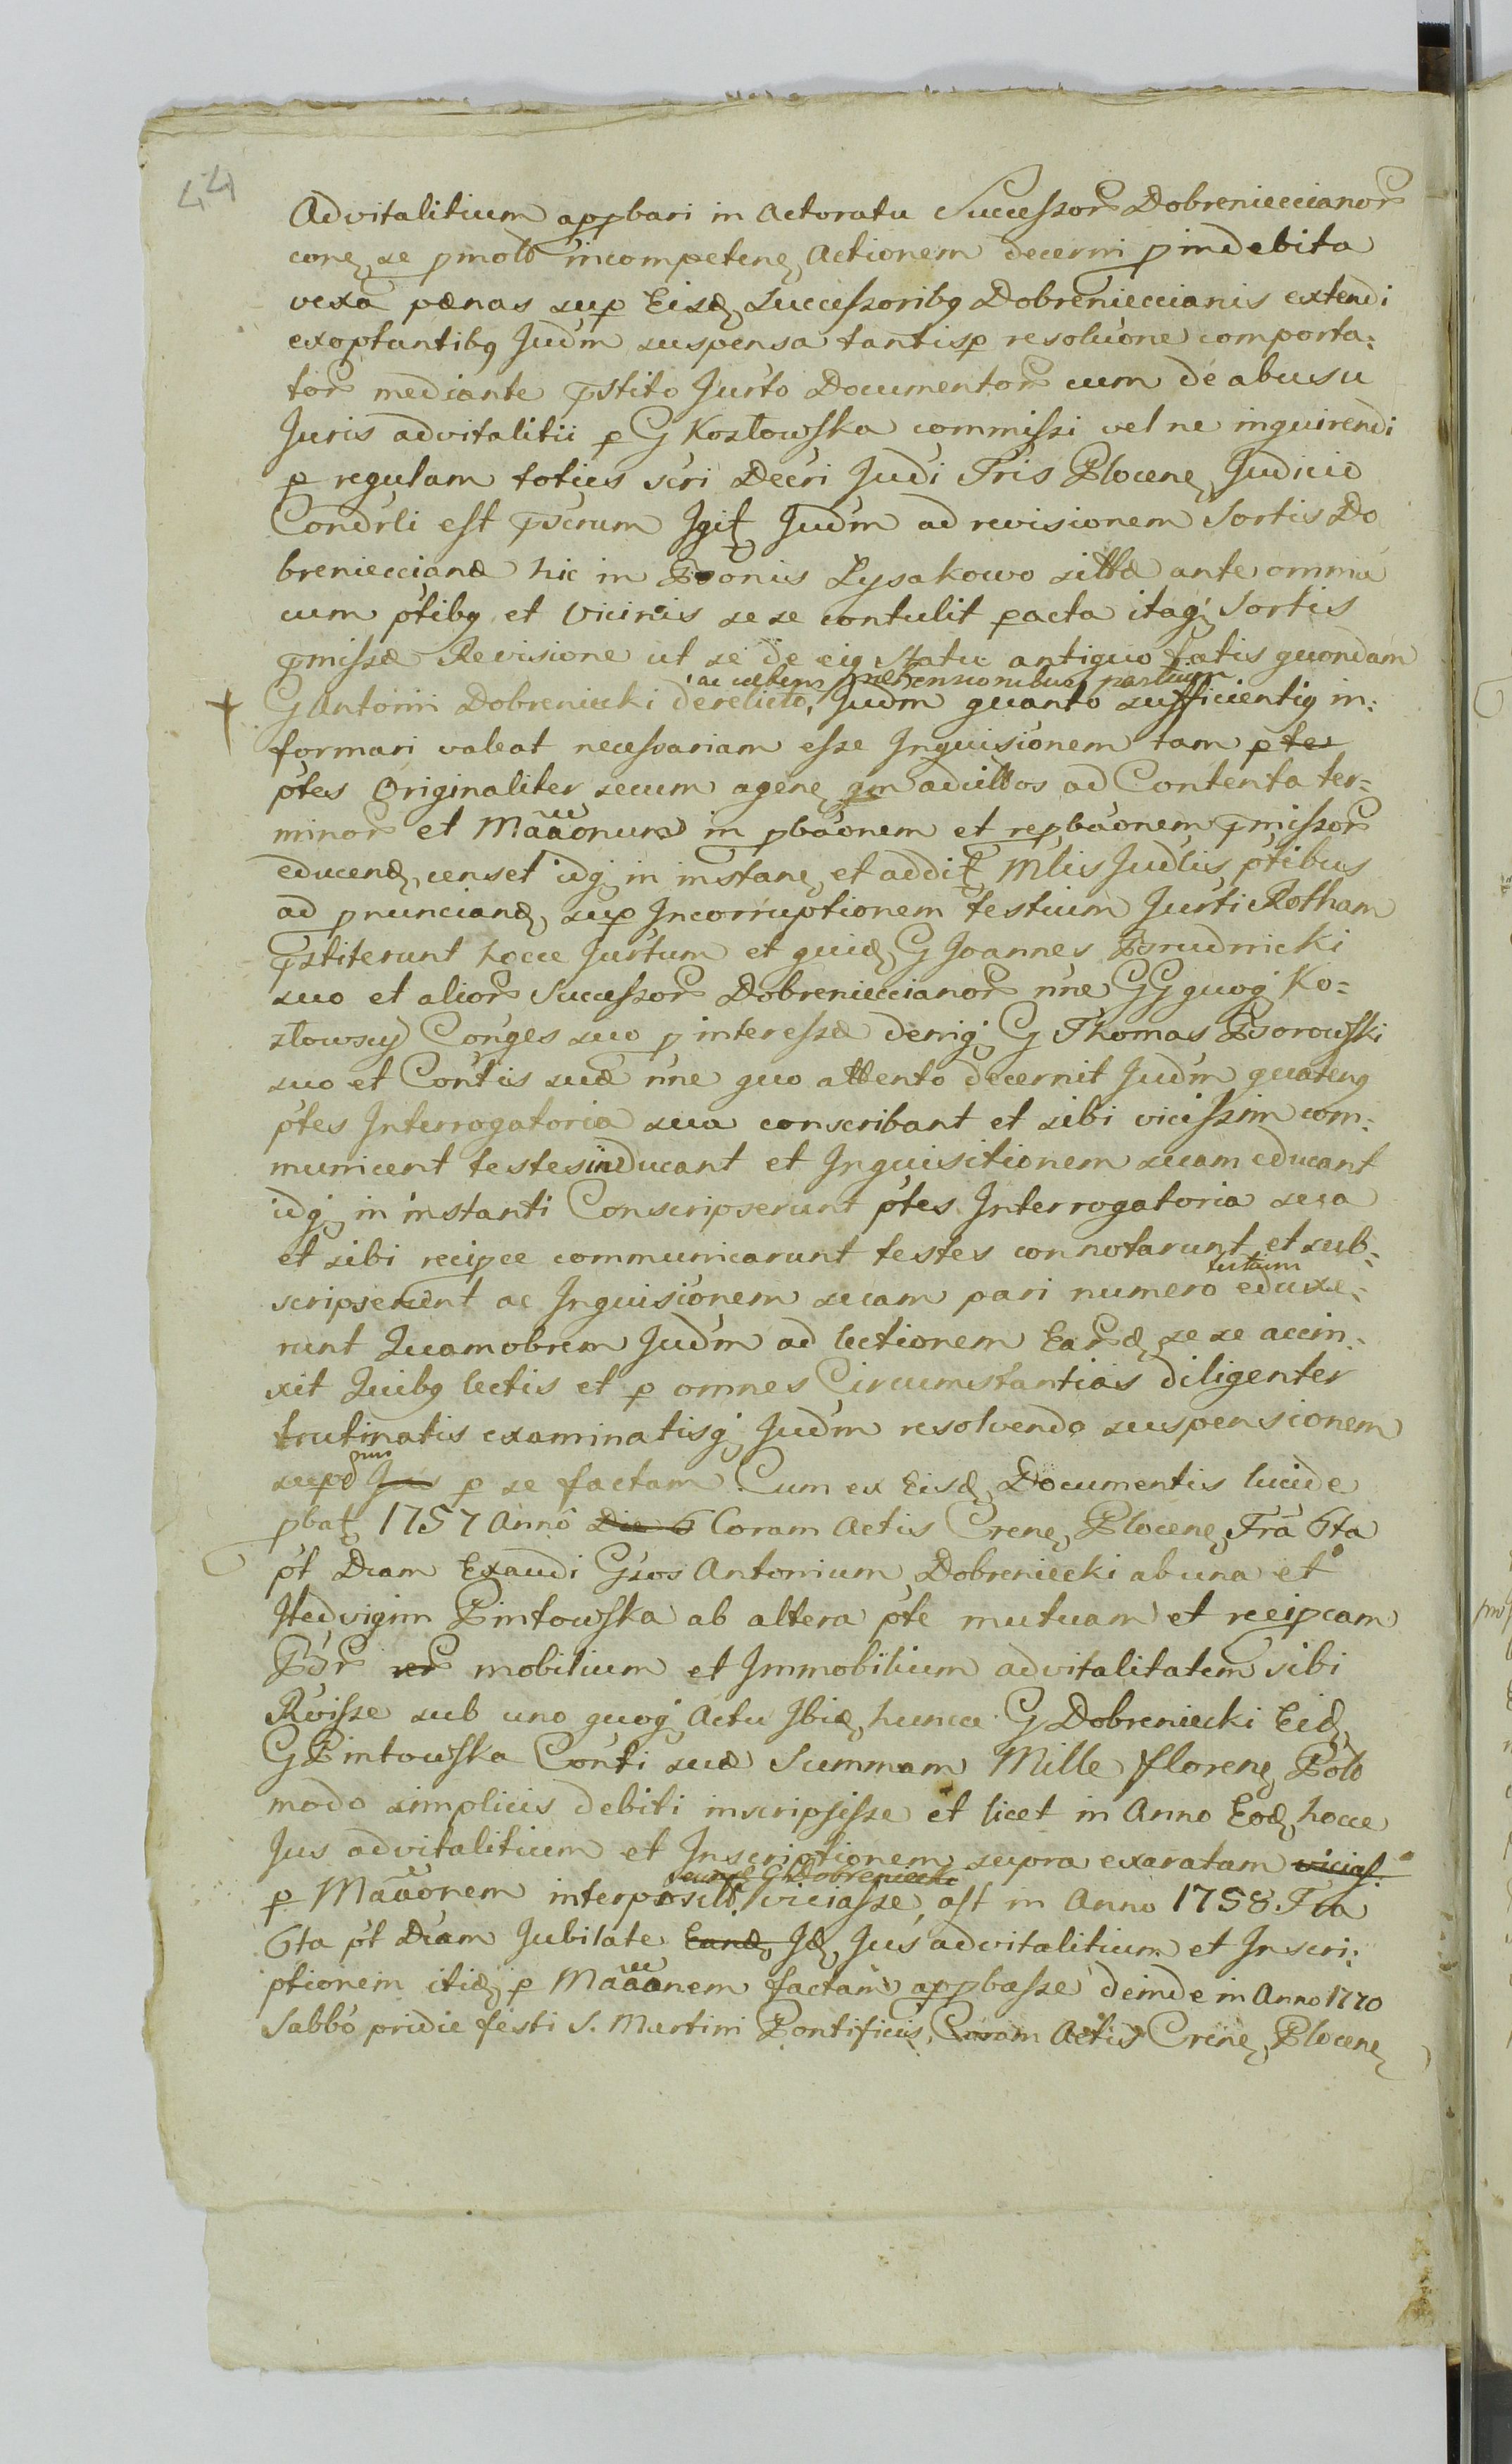 44
Advitalitium appbari in Actoratu Successor Dobrenieccianor
conę se pmoto incompetenę Actionem decerni p indebita
vexa pænas sup Eisdę Successoribq Dobrenieccianis extendi
exoptantibq Judm suspensa tantisp resoluone comporta:
tor mediante pstito Jurto Documentor cum de abusu
Juris advitalitii p G Kozłowska commissi vel ne inquirendi
p regulam toties scri Decri Judi Tris Plocenę Judicio
Condrli est pscrum Igit Judm ad revisionem Sortis Do
breniecciana hic in Bonis Łysakowo sittæ ante omnia
cum ptibq et Vicinis se se contulit pacta itaq Sortis
pmissæ Revisione ut se de eiq Statu antiquo fatis quondam
ac celebris præhensionibus partium
+ G Antonii Dobreniecki derelicto, Judm quanto sufficientiq in:
formari valeat necessariam esse Inquisionem tam p tes
ptes Originaliter secum agenę qm aducttos ad Contenta ter=
minor et Maāonum in pbaonem et repbaonem pmissor
educendę censet idq in instanę et addit Mtis Judlis ptibus
ad pnunciandę sup Incorruptionem testium Jurti Rotham
pstiterunt hocce Jurtum et quidę G Joannes Brudnicki
suo et alior Successor Dobrenieccianor nne GG quoq Ko=
złowscy Conges suo p interesse deniq G Thomas Borowski
suo et Contis suæ nne quo attento decernit Judm quatenq
ptes Interrogatoria sua conscribant et sibi vicissim com:
municent testes inducant et Inquisitionem suam educant
idq in instanti Conscripserunt ptes Interrogatoria sua
et sibi recipce communicarunt testes connotarunt et sub:
testium
scripserunt ac Inquisionem suam pari numero eduxe:
runt Quamobrem Judm ad lectionem Eardę se se accin:
xit Quibq lectis et p omnes Circumstantias diligenter
trutinatis examinatisq Judm resolvendo suspensionem
sup Jus p se factam. Cum ex Eisdę Documentis lucide
pbat 1757 Anno Die 6 Coram Actis Crenę Plocenę Fra 6ta
pt Dcam Exaudi Gsos Antonium Dobreniecki ab una et
Hedvigim Pintowska ab altera pte mutuam et recipcam
Bor rer mobilium et Immobilium advitalitatem sibi
Rvisse sub uno quoq Actu Ibidę hunce G Dobreniecki Eidę
G Pintowska Conti suæ Summam Mille florenę Polo
modo simplicis debiti inscripsisse et licet in Anno Eodę hocce
Jus advitalitium et Inscriptionem supra exaratam viciaf.
eundę G Dobreniecki
p Maāonem interposito viciasse, ast in Anno 1758. Fra
6ta pt Dcam Jubilate Eandę Idę Jus advitalitium et Inscri:
ptionem itidę p Maāonem factam appbasse deinde in Anno 1770
Sabbo pridie festi S. Martini Pontificis, Coram Actis Crenę Plocenę